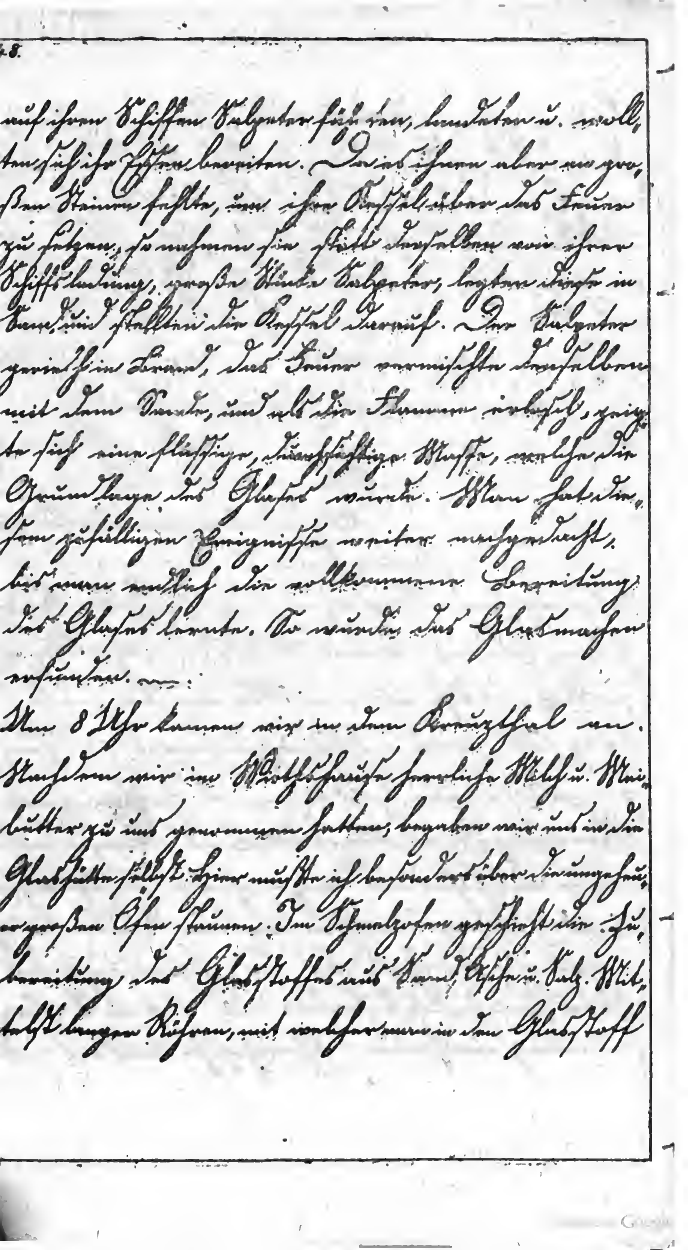 48.
auf ihren Schiffen Salpeter führten, landeten u. woll„
ten sich ihr Essen bereiten. Da es ihnen aber an gro„
ßen Steinen fehlte, um ihre Kessel über das Feuer
zu setzen, so nahmen sie statt derselben von ihrer
Schiffsladung, große Stücke Salpeter, legten diese in
Sand und stellten die Kessel darauf. Der Salpeter
gerieth in Brand, das Feuer vermischte denselben
mit dem Sande, und als die Flamme erlosch, zeig„
te sich eine flüssige, durchsichtige Masse, welche die
Grundlage des Glases wurde. Man hat die„
sem zufälligen Ereignisse weiter nachgedacht,
bis man endlich die vollkommene Bereitung
des Glases lernte. So wurde das Glasmachen
erfunden.
Um 8 Uhr kamen wir in dem Kreuzthal an.
Nachdem wir im Wirthshause herrliche Milch u. Mai„
butter zu uns genommen hatten, begaben wir uns in die
Glashütte selbst. Hier mußte ich besonders über die ungeheu„
er großen Öfen staunen. Im Schmelzofen geschieht die Zu„
bereitung des Glasstoffes aus Sand, Asche u. Salz. Mit„
telst langer Röhren, mit welcher man in den Glasstoff
Google